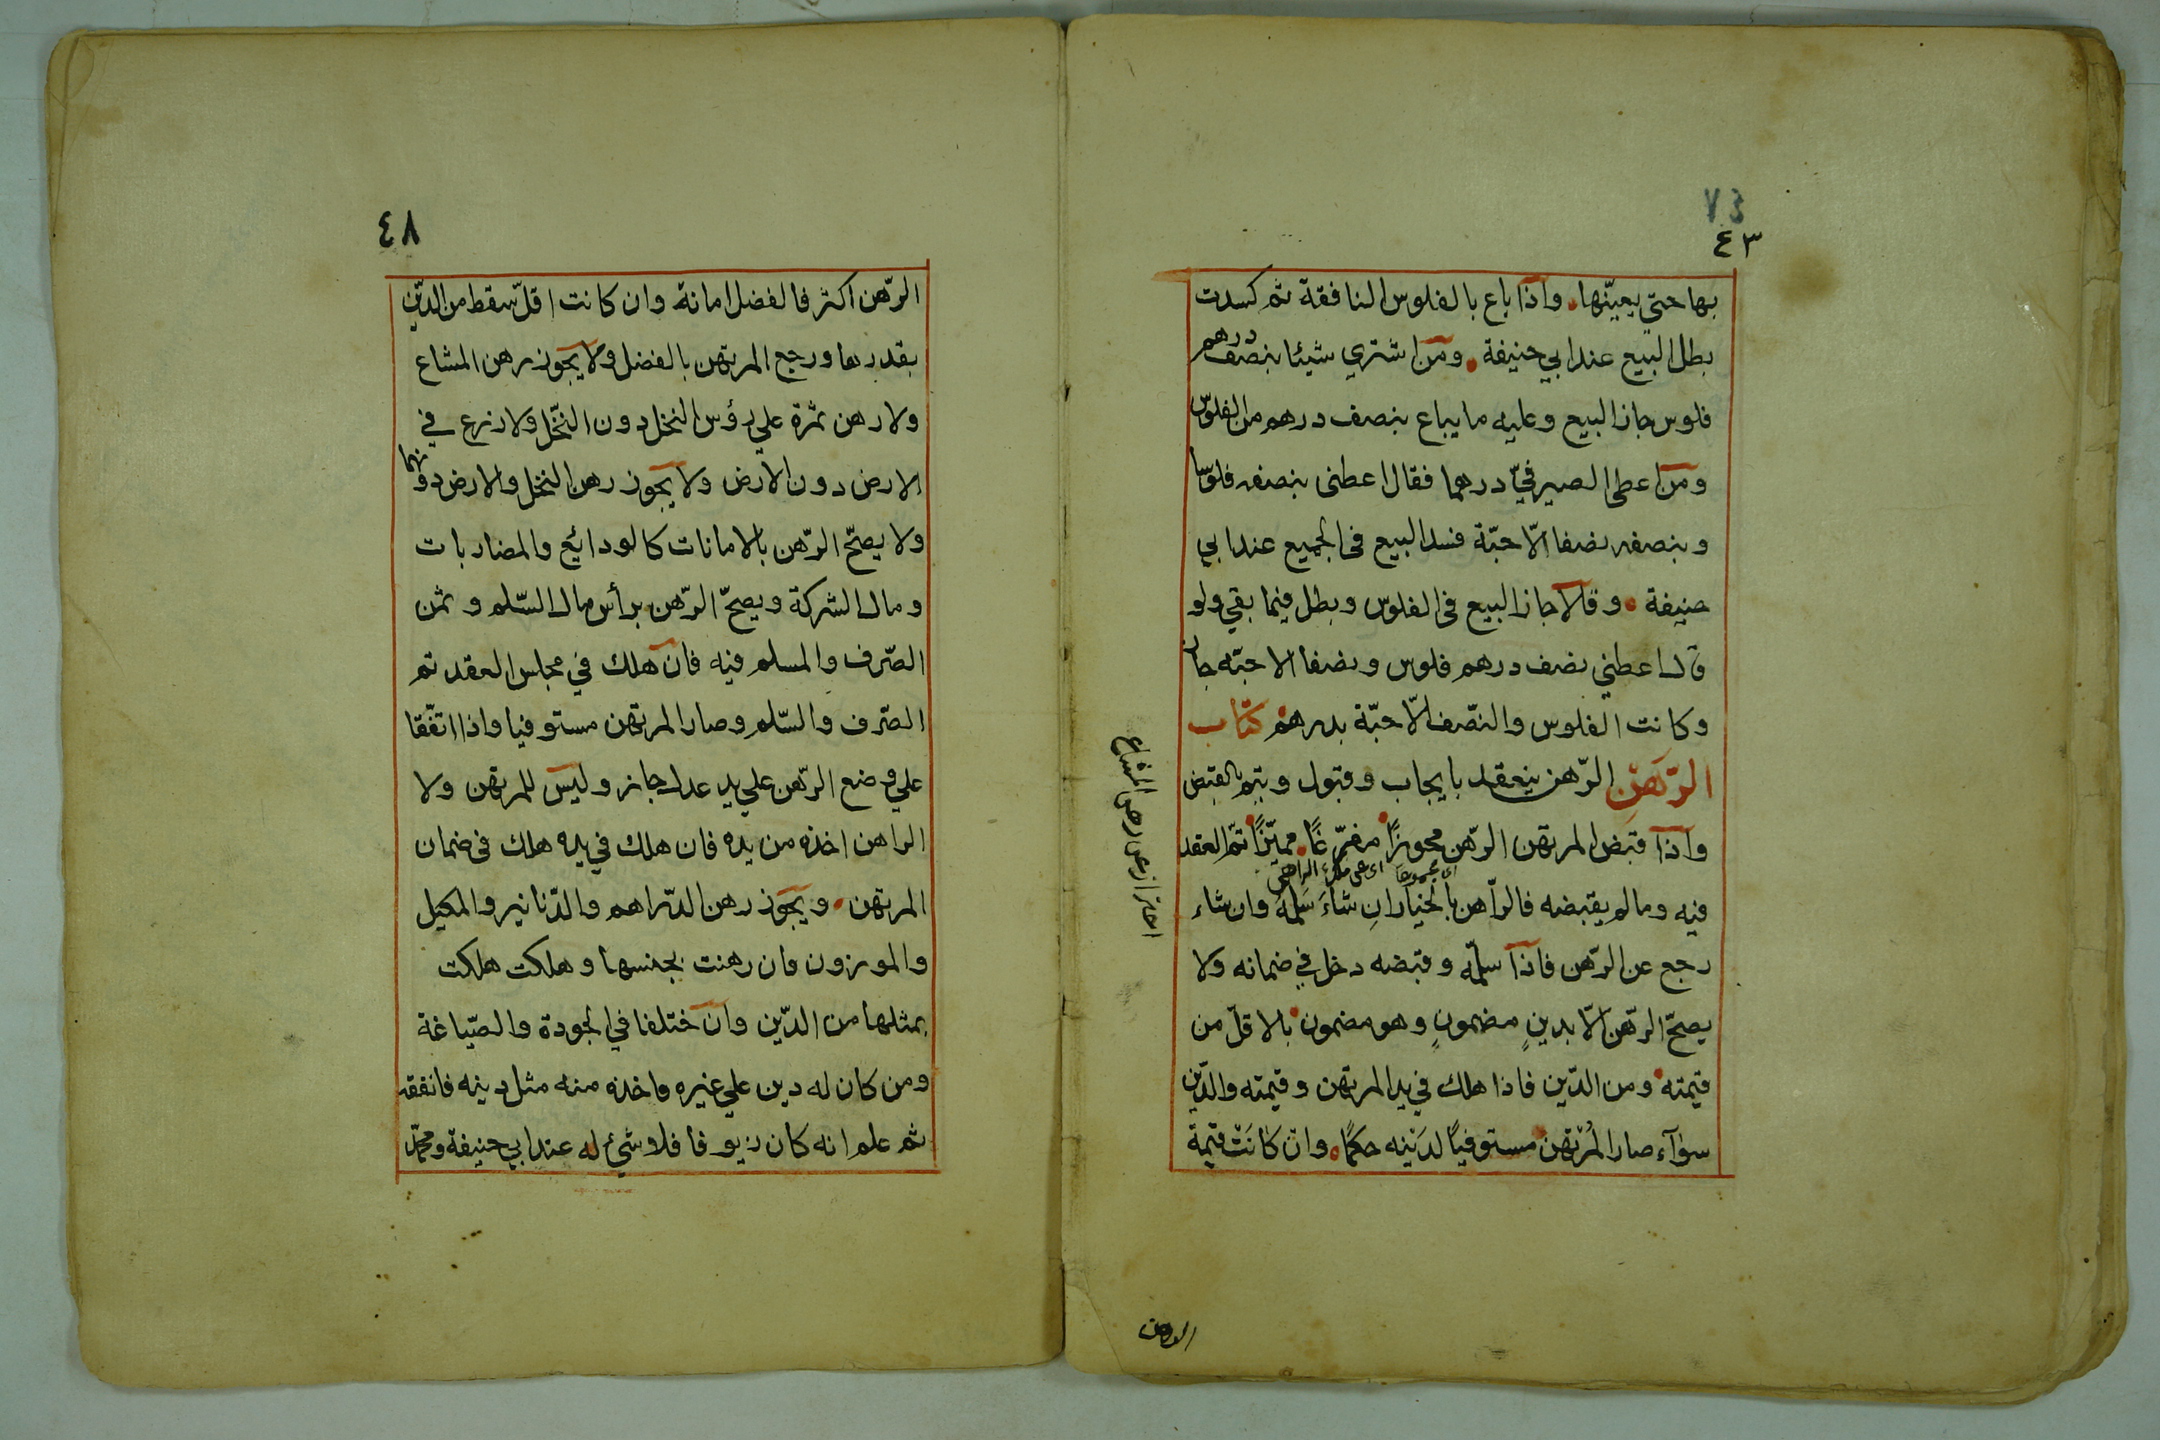 ٤٧
٤٣
بها حتي يعيّنها واذا باع بالفلوس النافقة ثم كسدت
بطل البيع عند ابي حنيفة ومن اشتري شيئا بنصف درهم
فلوس جاز البيع وعليه ما يباع بنصف درهم من الفلوس
ومن اعطى الصيرفيّ درهما فقال اعطنى بنصفه فلوسا
وبنصفه نصفا الّا حبّة فسد البيع فى الجميع عند ابي
حنيفة وقالا جاز البيع فى الفلوس وبطل فيما بقي ولو
قال اعطني نصف درهم فلوس ونصفا الا حبّه جاز
وكانت الفلوس والنصّف الّا حبّة بدرهم كتاب
الرّهن الرّهن ينعقد بايجاب وقبول ويتم بالقبض
واذا قبض المرتهن الرّهن محوزًا مفرّغًا مميّزًا تمّ العقد
اى مجموعا اى عن ملك الراهن
فيه ومالم يقبضه فالرّاهن بالخيار ان شاءَ سَلّمهُ وان شاء
رجع عن الرّهن فاذا سلّمه وقبضه دخل في ضمانه ولا
يصحّ الرّهن الّا بدينٍ مضمونٍ وهو مضمون بالاقلّ من
قيمته ومن الدّين فاذا هلك في يد المرتهن وقيمته والدّين
سوآء صار المُرْتهن مستوفيًا لدَيْنه حكمًا وان كانَتْ قيمة
احتراز عن رهن المشاع
الرهن
٤٨
الرّهن اكثر فالفضل امانة وان كانت اقلّ سقط من الدّين
بقدرها ورجع المرتهن بالفضل ولا يجوز رهن المشاع
ولا رهن ثمرة علي رؤس النخل دون النّخل ولا زرع في
الارض دون الارض ولا يجوز رهن النخل والارض دونهما
ولا يصحّ الرّهن بالامانات كالودائع والمضاربات
ومال الشركة ويصحّ الرّهن برأس مال السّلم وثمن
الصّرف والمسلم فيه فان هلك في مجلس العقد تم
الصّرف والسّلم وصار المرتهن مستوفيا واذا اتّفقا
علي وضع الرّهن علي يد عدل جاز وليس للمرتهن ولا
الراهن اخذه من يده فان هلك في يده هلك فى ضمان
المرتهن ويجوز رهن الدّراهم والدّنانير والمكيل
والموزون فان رهنت بجنسها وهلكت هلكت
بمثلها من الدّين وان ختلفا في الجودة والصّياغة
ومن كان له دين علي غيره فاخذه منه مثل دينه فانفقه
ثم علم انه كان زيوفا فلا شيء له عند ابي حنيفة ومحمّد